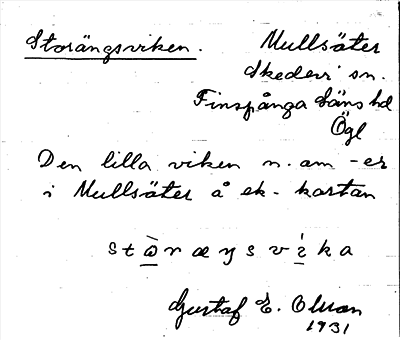 Storängsviken. Mullsäter
Skedevi sn.
Finspånga läns hd
Ögl
Den lilla viken n. om -er
i Mullsäter å ek-kartan
Gustaf E. Olsson
1931